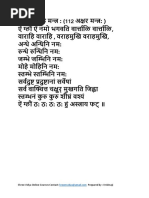 मन्त्र : (112 अक्षर मन्त्र: )
ऐं ग्लौं ऐं नमो भगवति वार्त्तालि वार्त्तालि,
वाराहि वाराहि , वराहमुखि वराहमुखि,
अन्धे अन्धिनि नम:
रुन्धे रुन्धिनि नम:
जम्भे जम्भिनि नम:
मोहे मोहिनि नम:
स्तम्भे स्तम्भिनि नम:
सर्वदुष्ट प्रदुष्टानां सर्वेषां
सर्व वाक्चित्त चक्षुर् मुखगति जिह्वा
स्तम्भनं कुरु कुरु शीघ्रं वश्यं
ऐं ग्लौं ठ: ठ: ठ: ठ: हुं अस्त्राय फट् ॥
Prepared By: